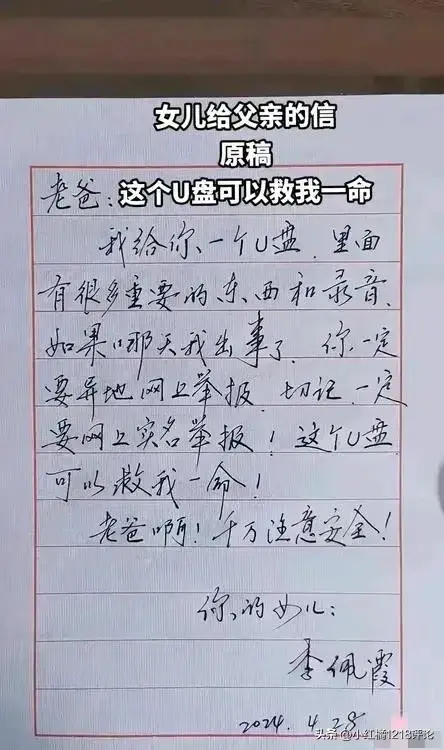 女儿给父亲的信
原稿
这个U盘可以救我一命
老爸:
我给你一个U盘,里面
有很多重要的东西和录音,
如果哪天我出事了,你一定
要异地网上举报,切记,一定
要网上实名举报!这个U盘
可以救我一命!
老爸啊!千万注意安全!
你的女儿:
李佩霞
2024.4.28
头条@小红橘1218评论